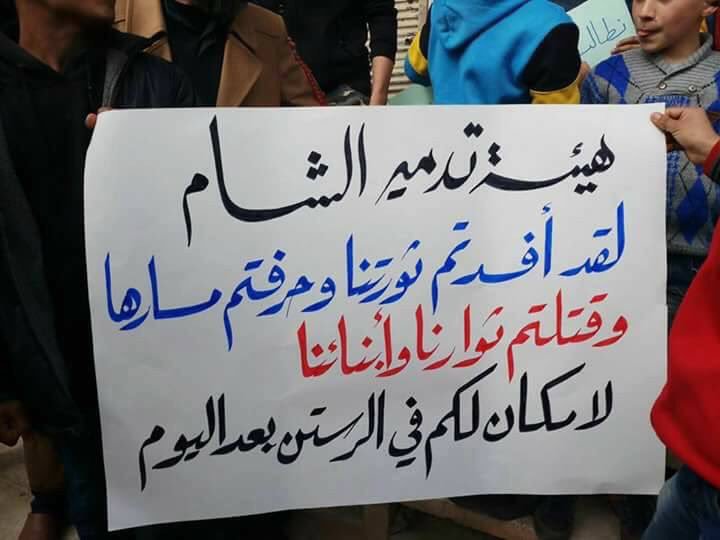 نطالب
هيئة تدمير الشام
لقد أفسدتم ثورتنا وحرفتم مسارها
وقتلتم ثوارنا وأبنائنا
لا مكان لكم في الرستن بعد اليوم